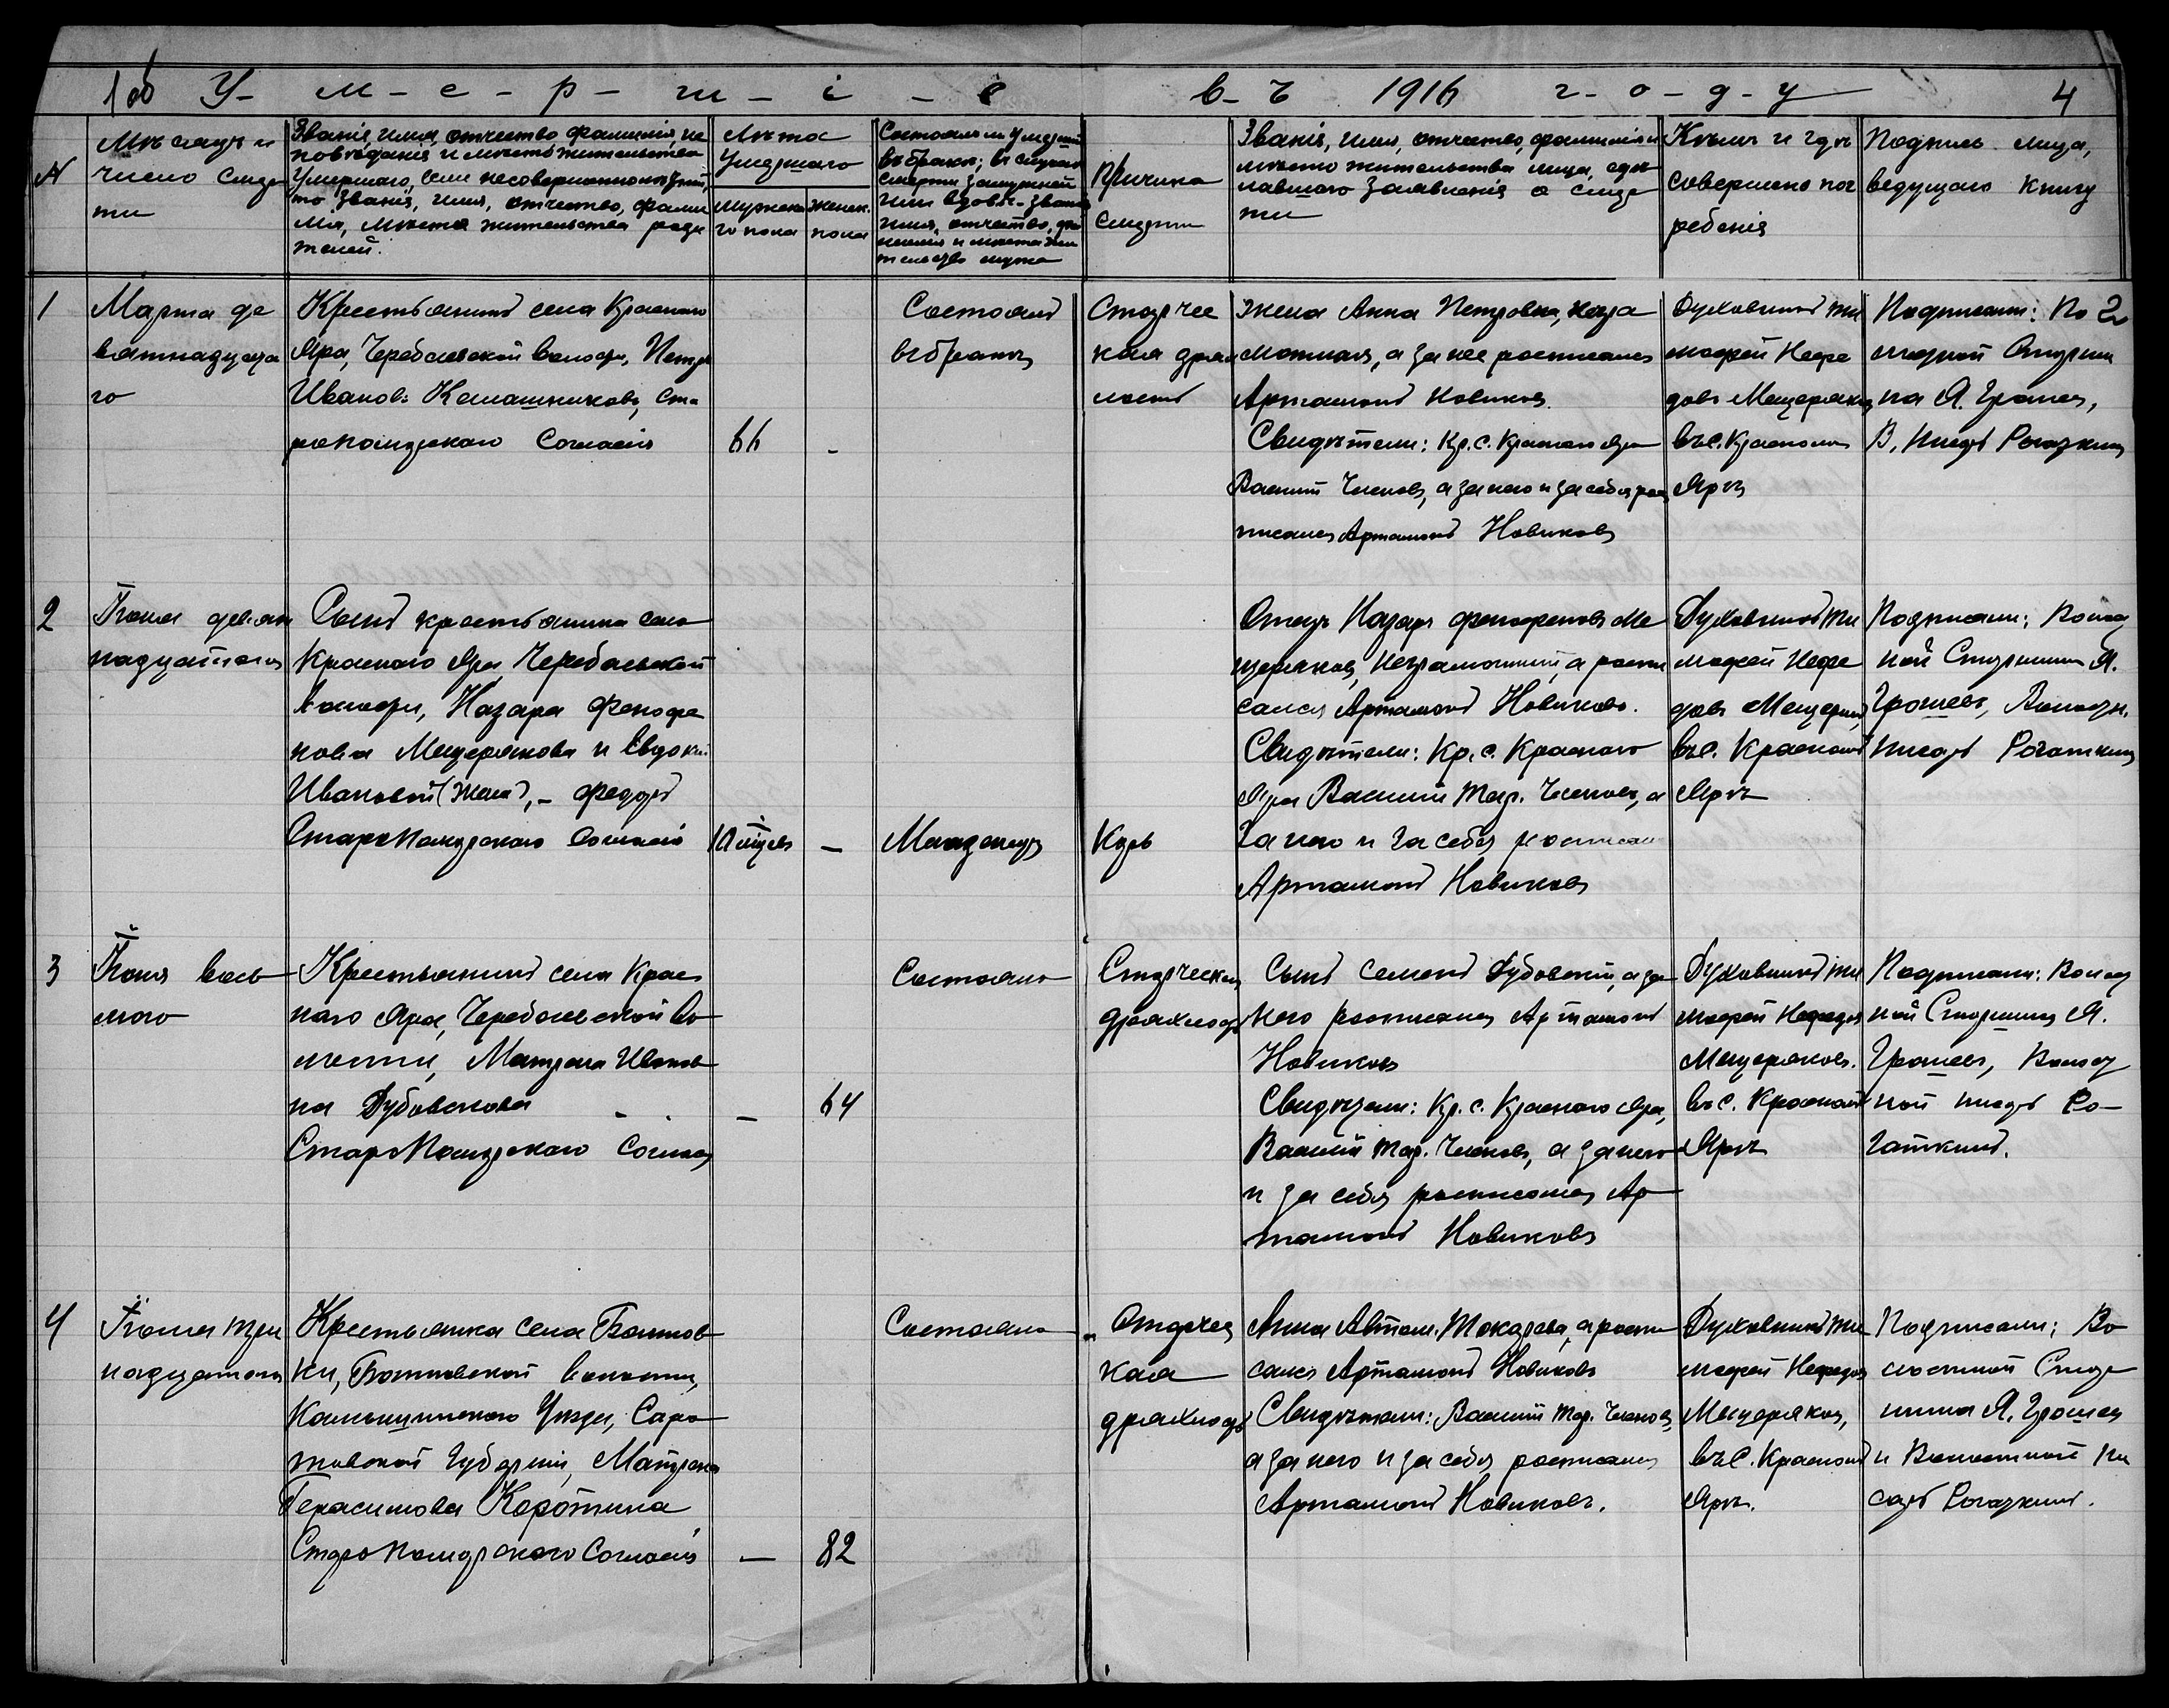 У-м-е-р-ш-і-е в-ъ 1916 г-о-д-у 4
N
Мѣсяцъ и
число смер
ти
Званія, имя, отчество, фамилія,
повѣданія и мѣсто жительства
умершаго, если несовершеннолѣтній,
то званія, имя, отчество, фами
лія, мѣсто жительства роди
телей.
Лѣта
умершаго
мужска
го пола
женск.
пола
Состоялъ ли умершій
въ бракѣ; въ случаѣ
смерти замужней
или вдовы - званіе
имя, отчество, фа
милія и мѣсто жи
тельство мужа
Причина
смерти
Званія, имя, отчество, фамилія и
мѣсто жительства лица, сдѣ
лавшаго заявленія о смер
ти
Кѣмъ и гдѣ
совершено пог
ребенія
Подпись лица,
ведущаго книгу
1
Марта де
вятнадцата
го
Крестьянинъ села Краснаго
Яра, Черебаевской волости, Петръ
Ивановъ Калашниковъ, Ста
рапоморскаго Согласія
66
-
Состоялъ
въ бракѣ
Старчес
кая дрях
лость
Жена Анна Петровна, негра
мотная, а за нее росписался
Артамонъ Новиковъ.
Свидѣтели: Кр. с. Краснаго Яра
Василій Чиковъ, а за него и за себя рос
писался Артамонъ Новиковъ
Духовникъ Ти
мофей Нефе
довъ Мещеряковъ
въ с. Красномъ
Ярѣ
Подписали:
Старши
на Я. Грошевъ,
В. писарь Рогаткинъ
2
Іюня девят
надцатаго
Сынъ крестьянина села
Краснаго Яра, Черебаевской
волости, Назара Фенофе
нова Мещерякова и Евдокіи
Ивановой (жена), - Федоръ
Старопоморскаго Согласія
10 мѣсяц
—
Младенецъ
Корь
Отецъ Назаръ Фенофеновъ Ме
щеряковъ, неграмотный, а роспи
сался Артамонъ Новиковъ.
Свидѣтели: Кр. с. Краснаго
Яра Василій Тар. Чиковъ, а
за него и за себя росписал
Артамонъ Новиковъ
Духовникъ Ти
мофей Нефе
довъ Мещеряковъ
въ с. Красномъ
Ярѣ
Подписали: Волост
ной Старшина Я.
Грошевъ, Волостн.
писарь Рогаткинъ
3
Іюля вось
мого
Крестьянинъ села Крас
наго Яра, Черебаевской во
лости, Матрена Иванов
на Дубовскова
Старопоморскаго Соглас
—
64
Состояла
Старческая
дряхлость
Сынъ Семенъ Дубовской, а за
него росписался Артамонъ
Новиковъ
Свидѣтели: Кр. с. Краснаго Яра,
Василій Тар. Чиковъ, а за него
и за себя росписался Ар
тамонъ Новиковъ
Духовникъ Ти
мофей Нефедов
Мещеряковъ.
въ с. Красномъ
Ярѣ
Подписали: Волост
ной Старшина Я.
Грошевъ, Волост
ной писарь Ро-
гаткинъ.
4
Іюля три
надцатаго
Крестьянка села Баннов
ки, Банновской волости,
Камышинскаго Уѣзда, Сара
товской Губерніи, Матрена
Герасимова Коротина
Старопоморскаго Согласія
—
82
Состояла
Старчес
кая
дряхлость
Анна Автом. Токарева, а роспи
сался Артамонъ Новиковъ
Свидѣтели: Василій Тар. Чиковъ,
а за него и за себя росписался
Артамонъ Новиковъ.
Духовникъ Ти
мофей Нефедов
Мещеряков,
въ с. Красномъ
Ярѣ.
Подписали: Во
лостной Стар
шина Я. Грошев
и Волостной пи
сарь Рогаткинъ.